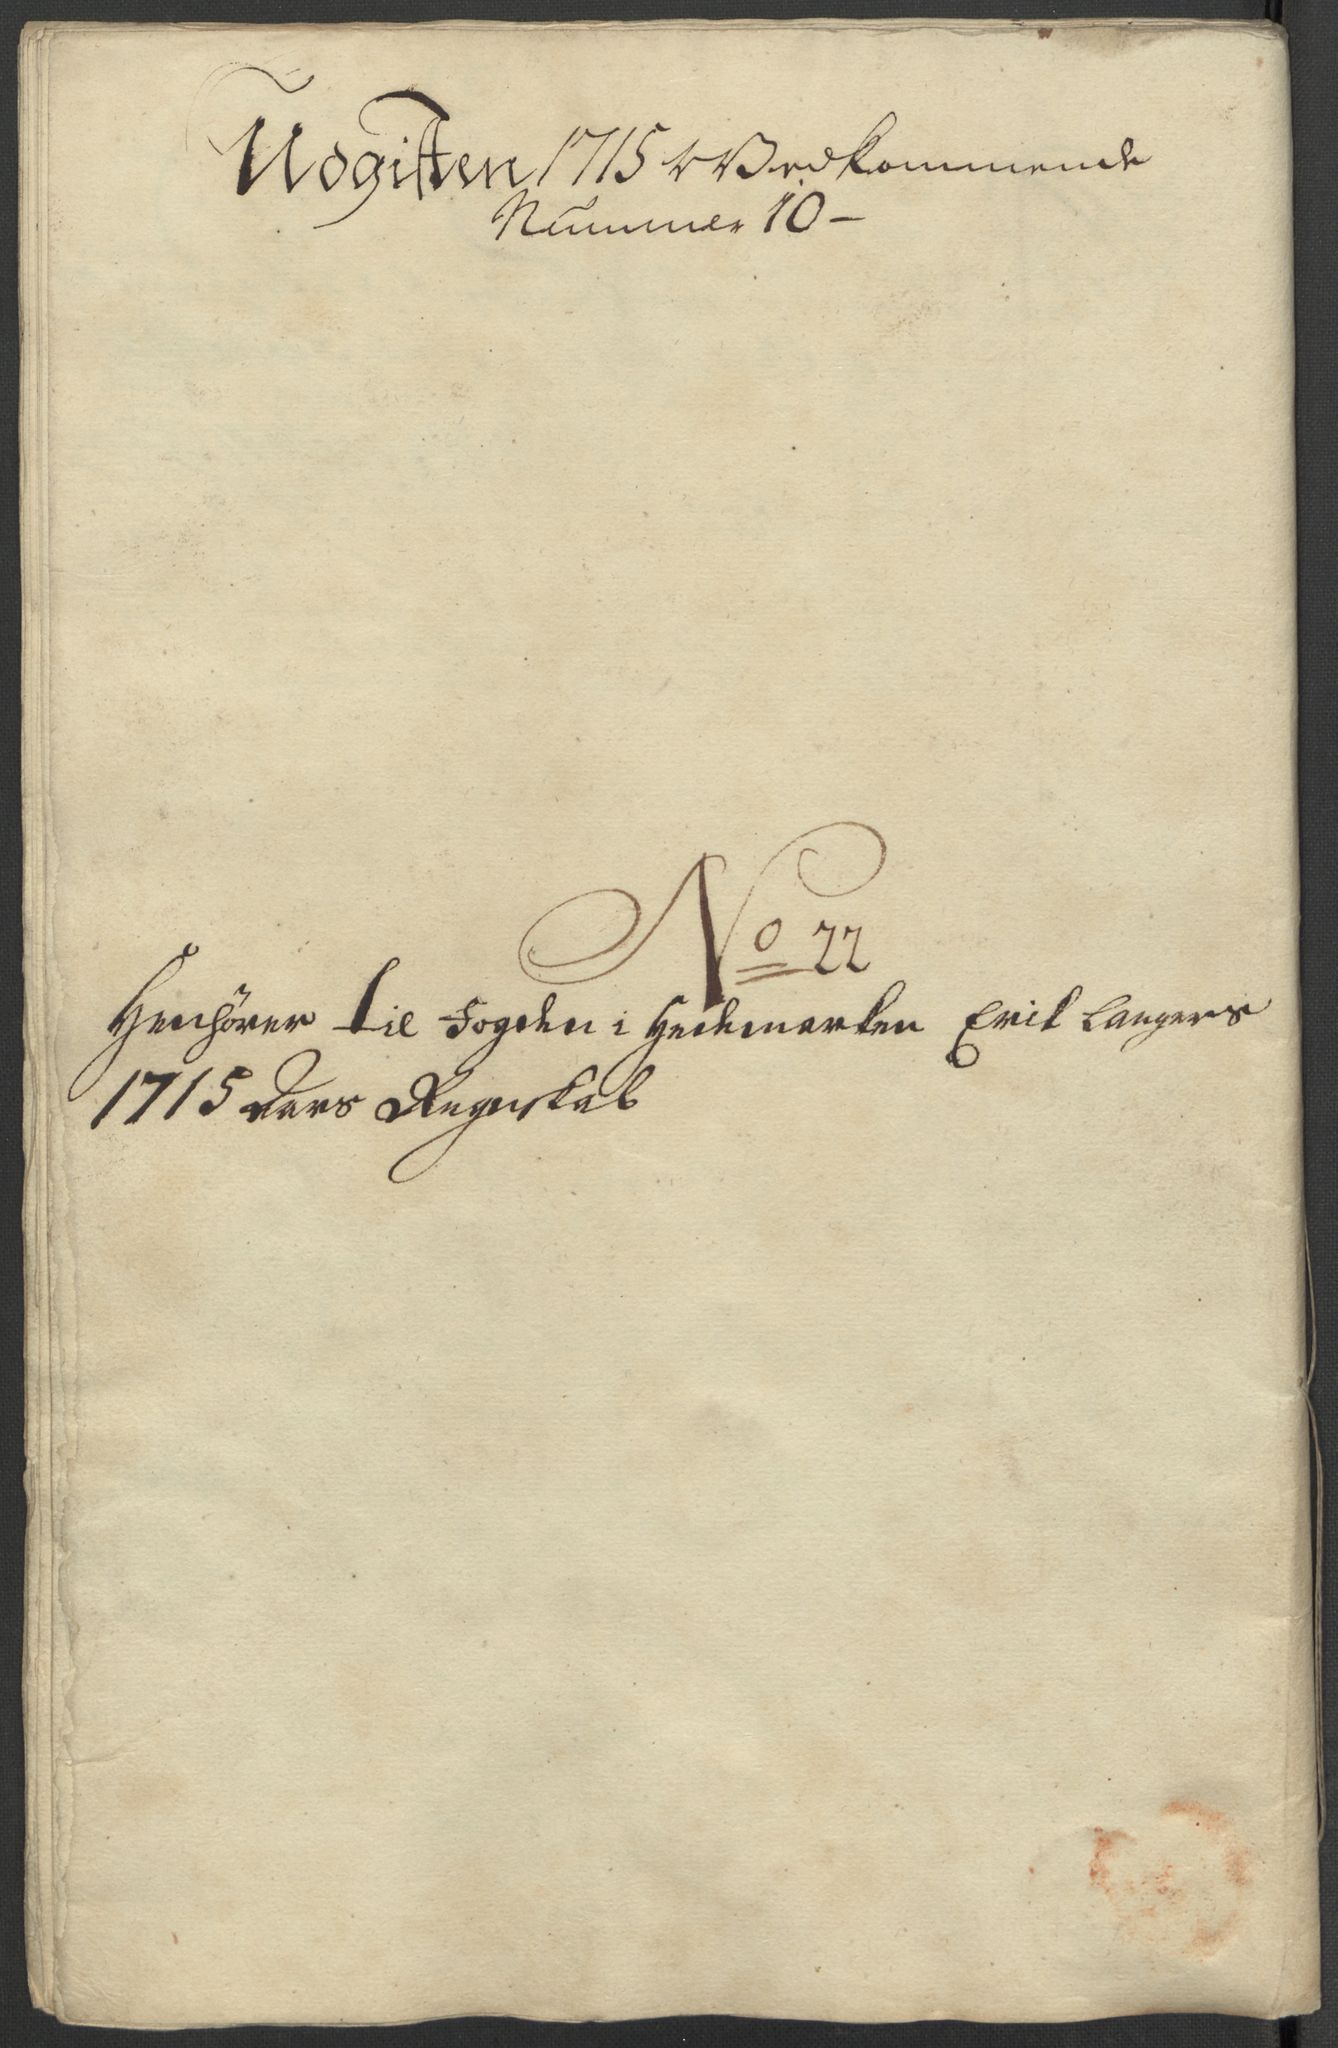 Udgiften 1715 Vedkommende
Nummer 10 –
No 22
Henhörer til Fogden i Hedemarken Erik Langers
1715 Aars Regnskab